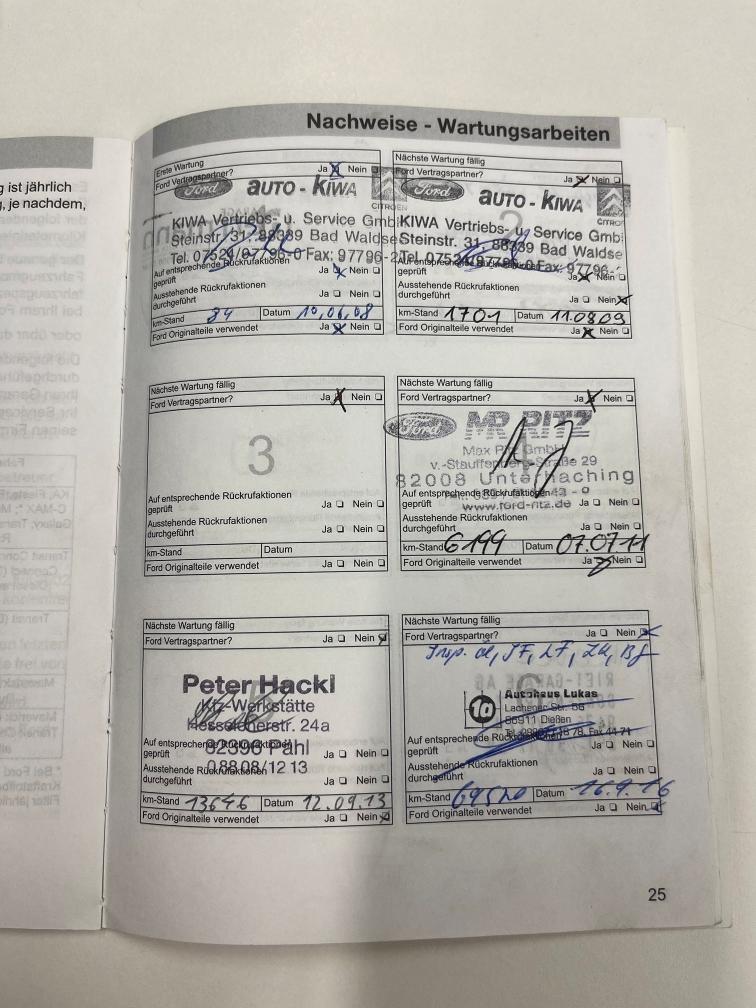 g ist jährlich
, je nachdem,
Nachweise - Wartungsarbeiten
Erste Wartung
Ford Vertragspartner? Ja Nein
Ford AUTO - KIWA
CITROEN
KIWA Vertriebs- u. Service Gmb
Steinstr. 31, 88339 Bad Waldse
Tel. 07524/97796-0 Fax: 97796-2
Auf entsprechende Rückrufaktionen
geprüft Ja Nein
Ausstehende Rückrufaktionen
durchgeführt Ja Nein
km-Stand 84 Datum 10,06,08
Ford Originalteile verwendet Ja Nein
Nächste Wartung fällig
Ford Vertragspartner? Ja Nein
Ford AUTO - KIWA
CITRO
2
KIWA Vertriebs- u. Service Gmb
Steinstr. 31, 88339 Bad Waldse
Tel. 07524/97796-0 Fax: 97796-2
Auf entsprechende Rückrufaktionen
geprüft Ja Nein
Ausstehende Rückrufaktionen
durchgeführt Ja Nein
km-Stand 1701 Datum 11.08.09
Ford Originalteile verwendet Ja Nein
Nächste Wartung fällig
Ford Vertragspartner? Ja Nein
3
Auf entsprechende Rückrufaktionen
geprüft Ja Nein
Ausstehende Rückrufaktionen
durchgeführt Ja Nein
km-Stand Datum
Ford Originalteile verwendet Ja Nein
Nächste Wartung fällig
Ford Vertragspartner? Ja Nein
Ford MR RITZ
Max Ritz GmbH
v.-Stauffenberg-Straße 29
82008 Unterhaching
www.ford-ritz.de
Auf entsprechende Rückrufaktionen
geprüft Ja Nein
Ausstehende Rückrufaktionen
durchgeführt Ja Nein
km-Stand 6199 Datum 07.07.11
Ford Originalteile verwendet Ja Nein
Nächste Wartung fällig
Ford Vertragspartner? Ja Nein
Peter Hackl
Kfz-Werkstätte
24a
82396 Pähl
08808/12 13
Auf entsprechende Rückrufaktionen
geprüft Ja Nein
Ausstehende Rückrufaktionen
durchgeführt Ja Nein
km-Stand 13646 Datum 12.09.13
Ford Originalteile verwendet Ja Nein
Nächste Wartung fällig
Ford Vertragspartner? Ja Nein
Insp. öl, IF, LF, ZK, Bf
Autohaus Lukas
Lachener Str. 56
86911 Dießen
Auf entsprechende Rückrufaktionen
geprüft Ja Nein
Ausstehende Rückrufaktionen
durchgeführt Ja Nein
km-Stand Datum 16.9.16
Ford Originalteile verwendet Ja Nein
25